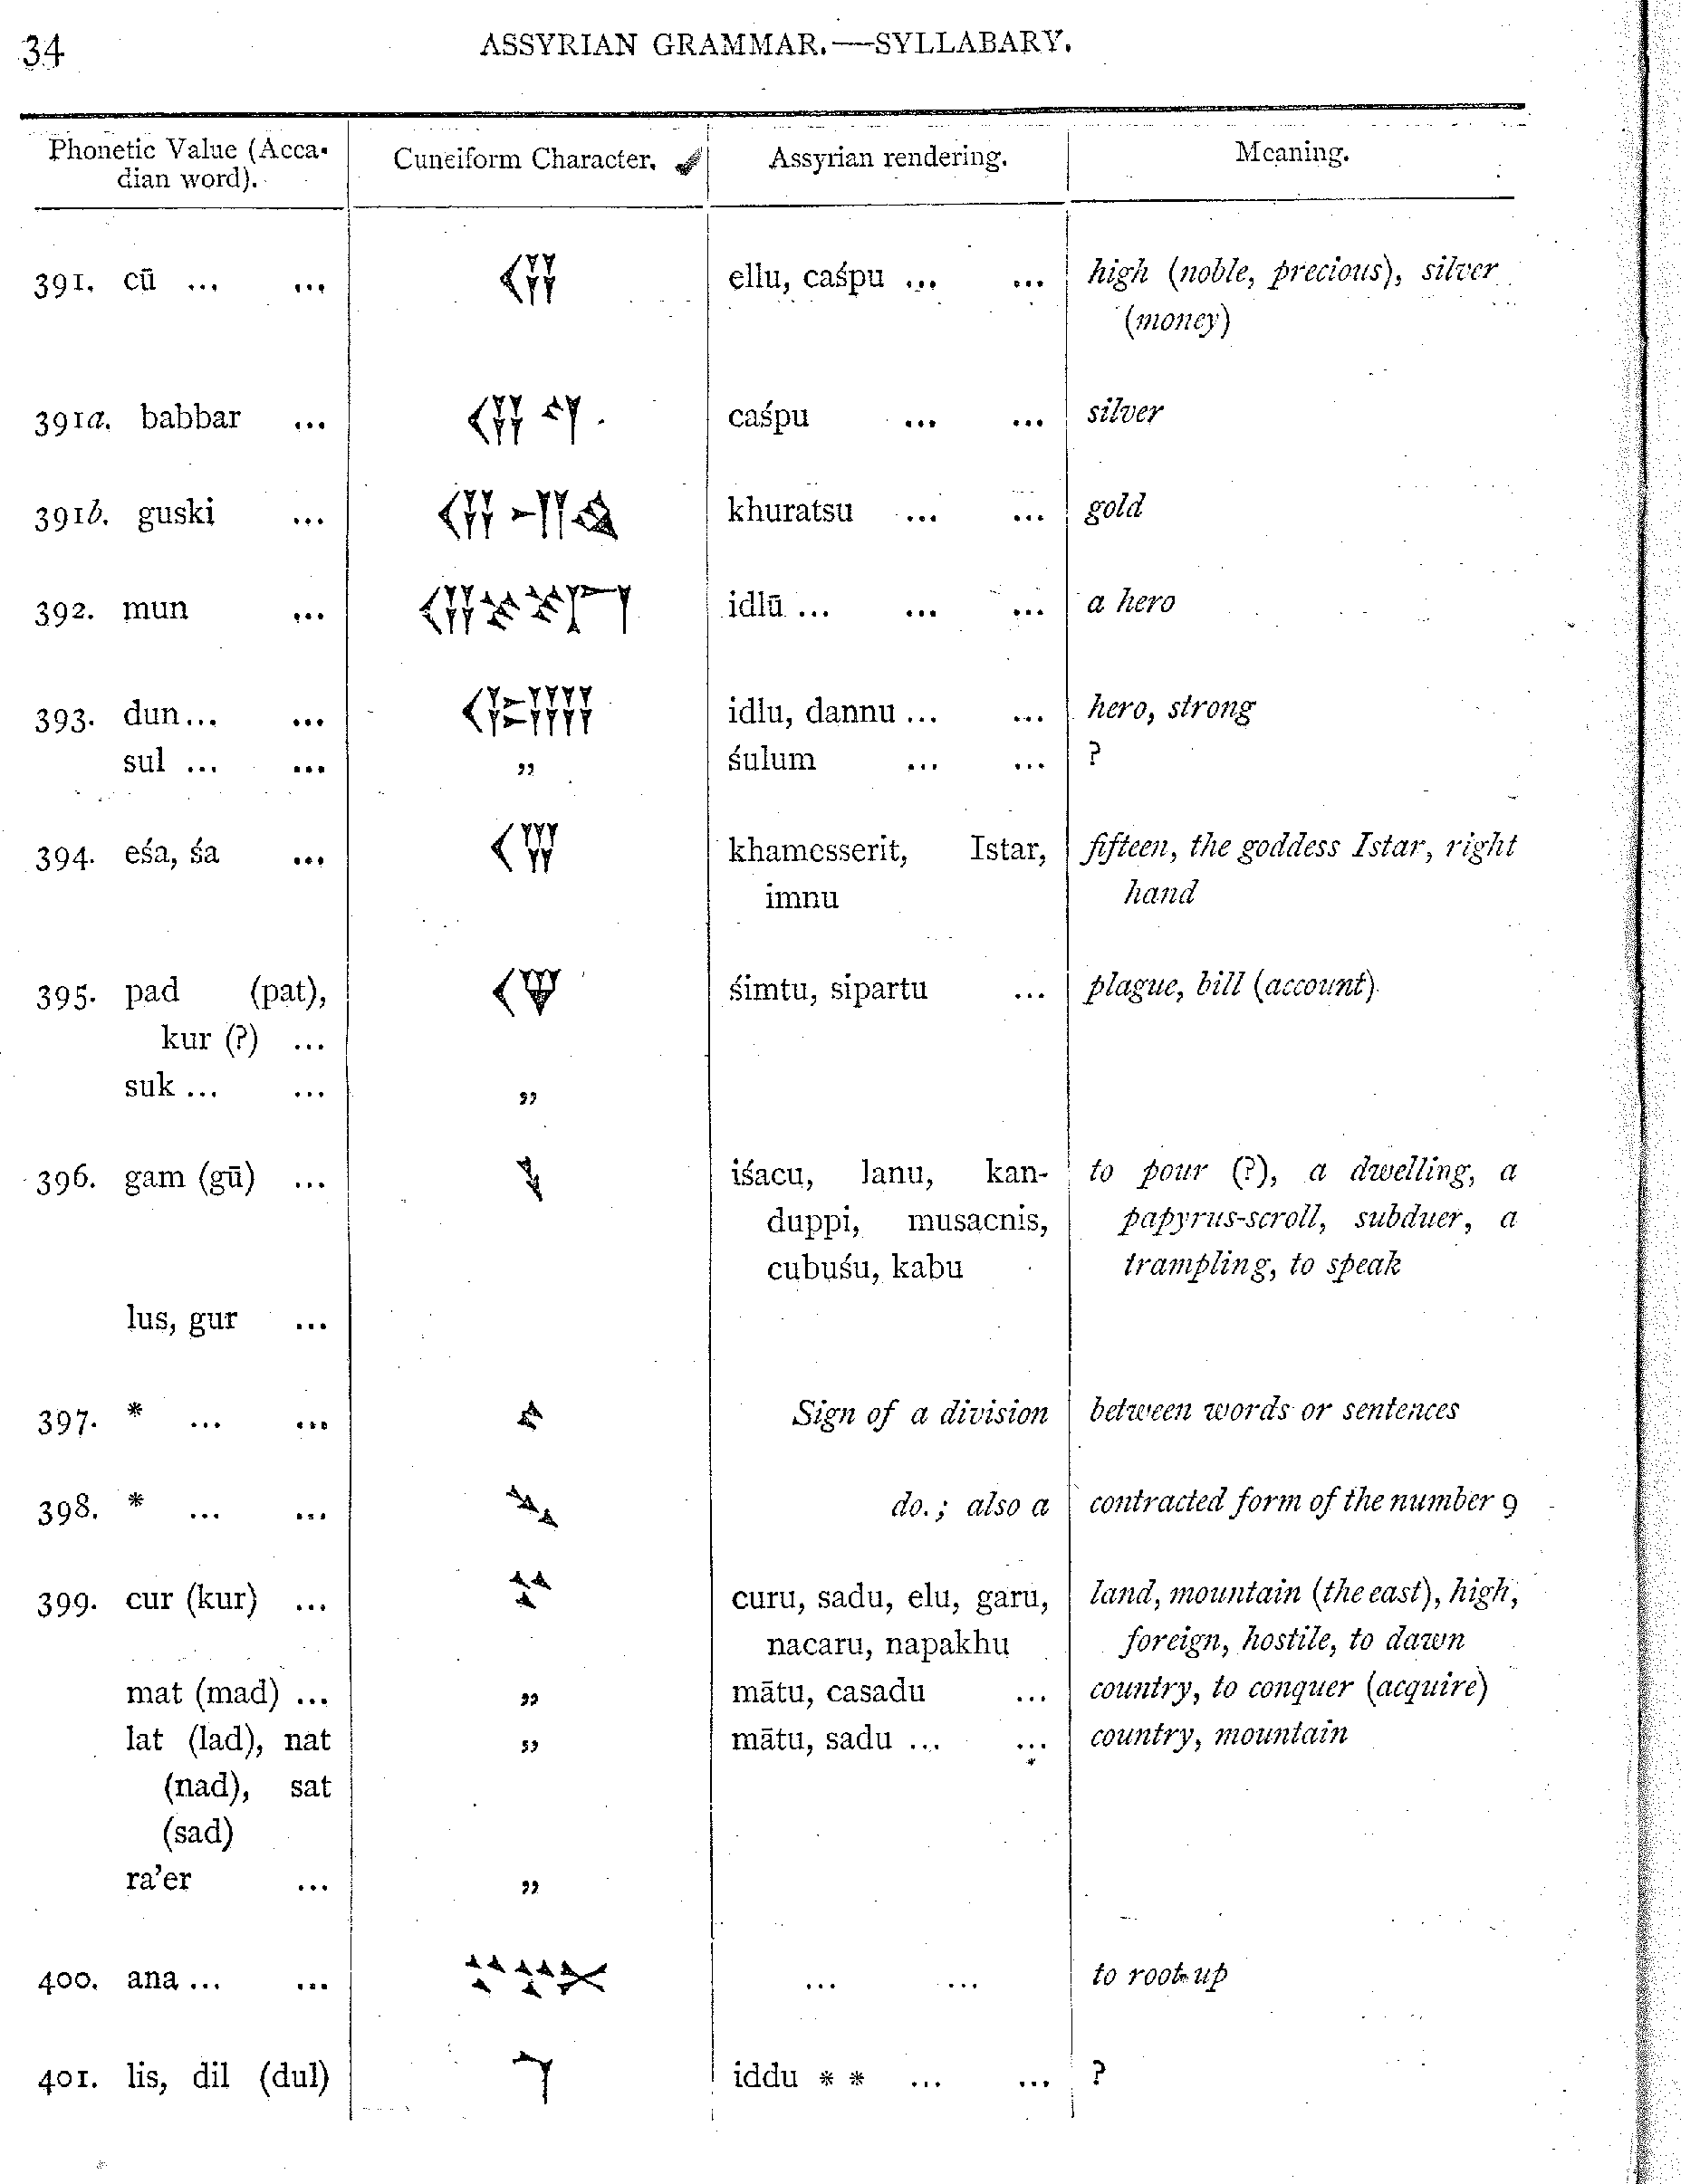 34
ASSYRIAN GRAMMAR.—SYLLABARY.
Phonetic Value (Acca- Cuneiform Character. Assyrian rendering. Meaning.
dian word).
391. cū ... ... 𒆬 ellu, caśpu ... ... high (noble, precious), silver
(money)
391a. babbar ... 𒆬𒌓 caśpu ... ... silver
391b. guski ... khuratsu ... ... gold
392. mun ... idlū ... ... ... a hero
393. dun ... ... 𒂄 idlu, dannu ... ... hero, strong
sul ... ... ,, śulum ... ... ?
394. eśa, śa ... 𒌋𒐊 khamesserit, Istar, fifteen, the goddess Istar, right
imnu hand
395. pad (pat), 𒉻 śimtu, sipartu ... plague, bill (account)
kur (?) ...
suk ... ... ,,
396. gam (gū) ... 𒃵 iśacu, lanu, kan- to pour (?), a dwelling, a
duppi, musacnis, papyrus-scroll, subduer, a
cubuśu, kabu trampling, to speak
lus, gur ...
397. * ... ... Sign of a division between words or sentences
398. * ... ... do.; also a contracted form of the number 9
399. cur (kur) ... 𒆳 curu, sadu, elu, garu, land, mountain (the east), high,
nacaru, napakhu foreign, hostile, to dawn
mat (mad) ... ,, mātu, casadu ... country, to conquer (acquire)
lat (lad), nat ,, mātu, sadu ... ... country, mountain
(nad), sat
(sad)
ra’er ... ,,
400. ana ... ... ... ... to root up
401. lis, dil (dul) iddu * * ... ... ?